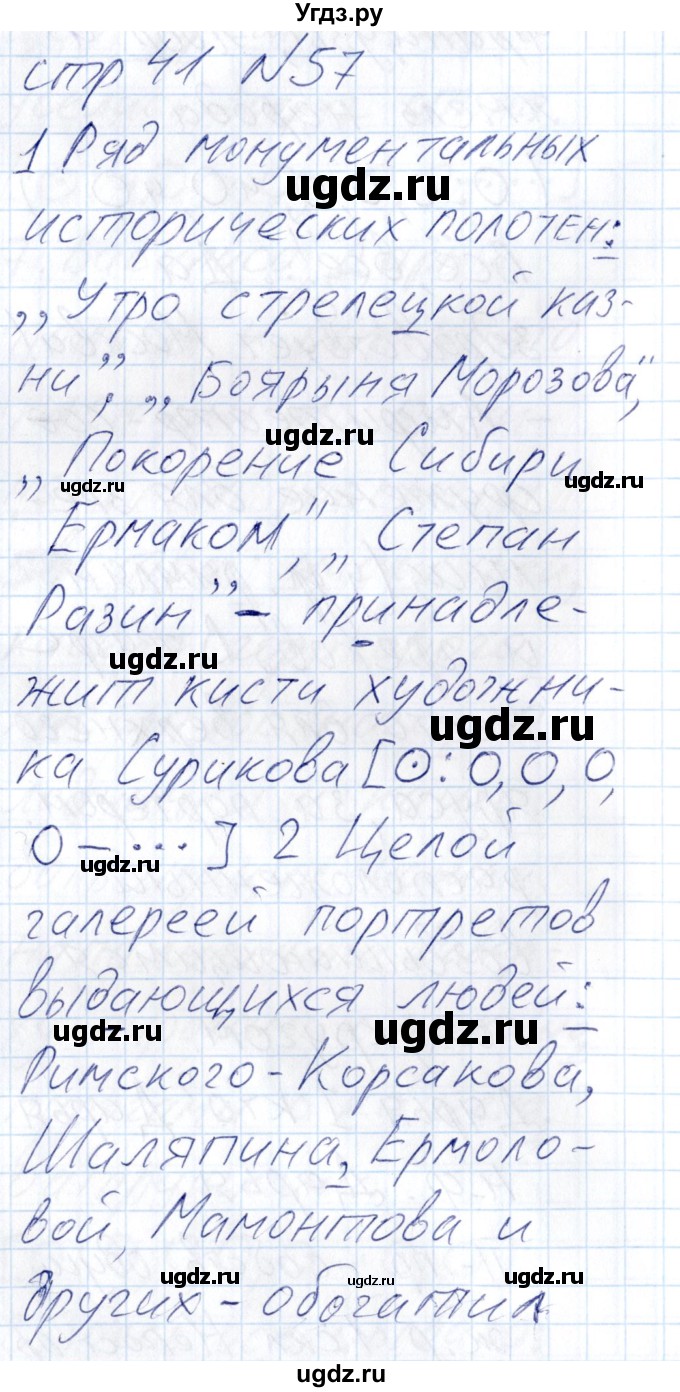 Угдз.ру
стр 41 N57
1 Ряд монументальных
ugdz.ru
исторических полотен:
,,Утро стрелецкой каз-
ни", ,,Боярыня Морозова",
ugdz.ru
,,Покорение Сибири
ugdz.ru ugdz.ru
Ермаком", ,,Степан
Разин" - принадле-
ugdz.ru
жит кисти художни-
ugdz.ru
ка Сурикова [⊙: О, О, О,
О - ...] 2 Целой
ugdz.ru
галереей портретов
выдающихся людей:
ugdz.ru ugdz.ru
Римского-Корсакова,
Шаляпина, Ермоло-
вой, Мамонтова и
ugdz.ru ugdz.ru ugdz.ru
других - обогатил
ugdz.ru